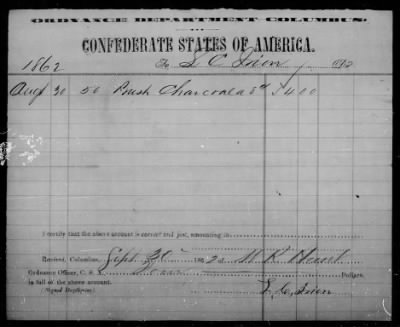 ORDNANCE DEPARTMENT-COLUMBUS.
CONFEDERATE STATES OF AMERICA.
1862 To S. C. Irion, 1862
Aug 30 50 Bush Charcoal a 8¢ $4 00
I certify that the above account is correct and just, amounting to
Received, Columbus, Sept. 30 1862 M R
Ordnance Officer, C. S. Four Dollars,
in full of the above account.
(Signed Duplicate) S. C. Irion